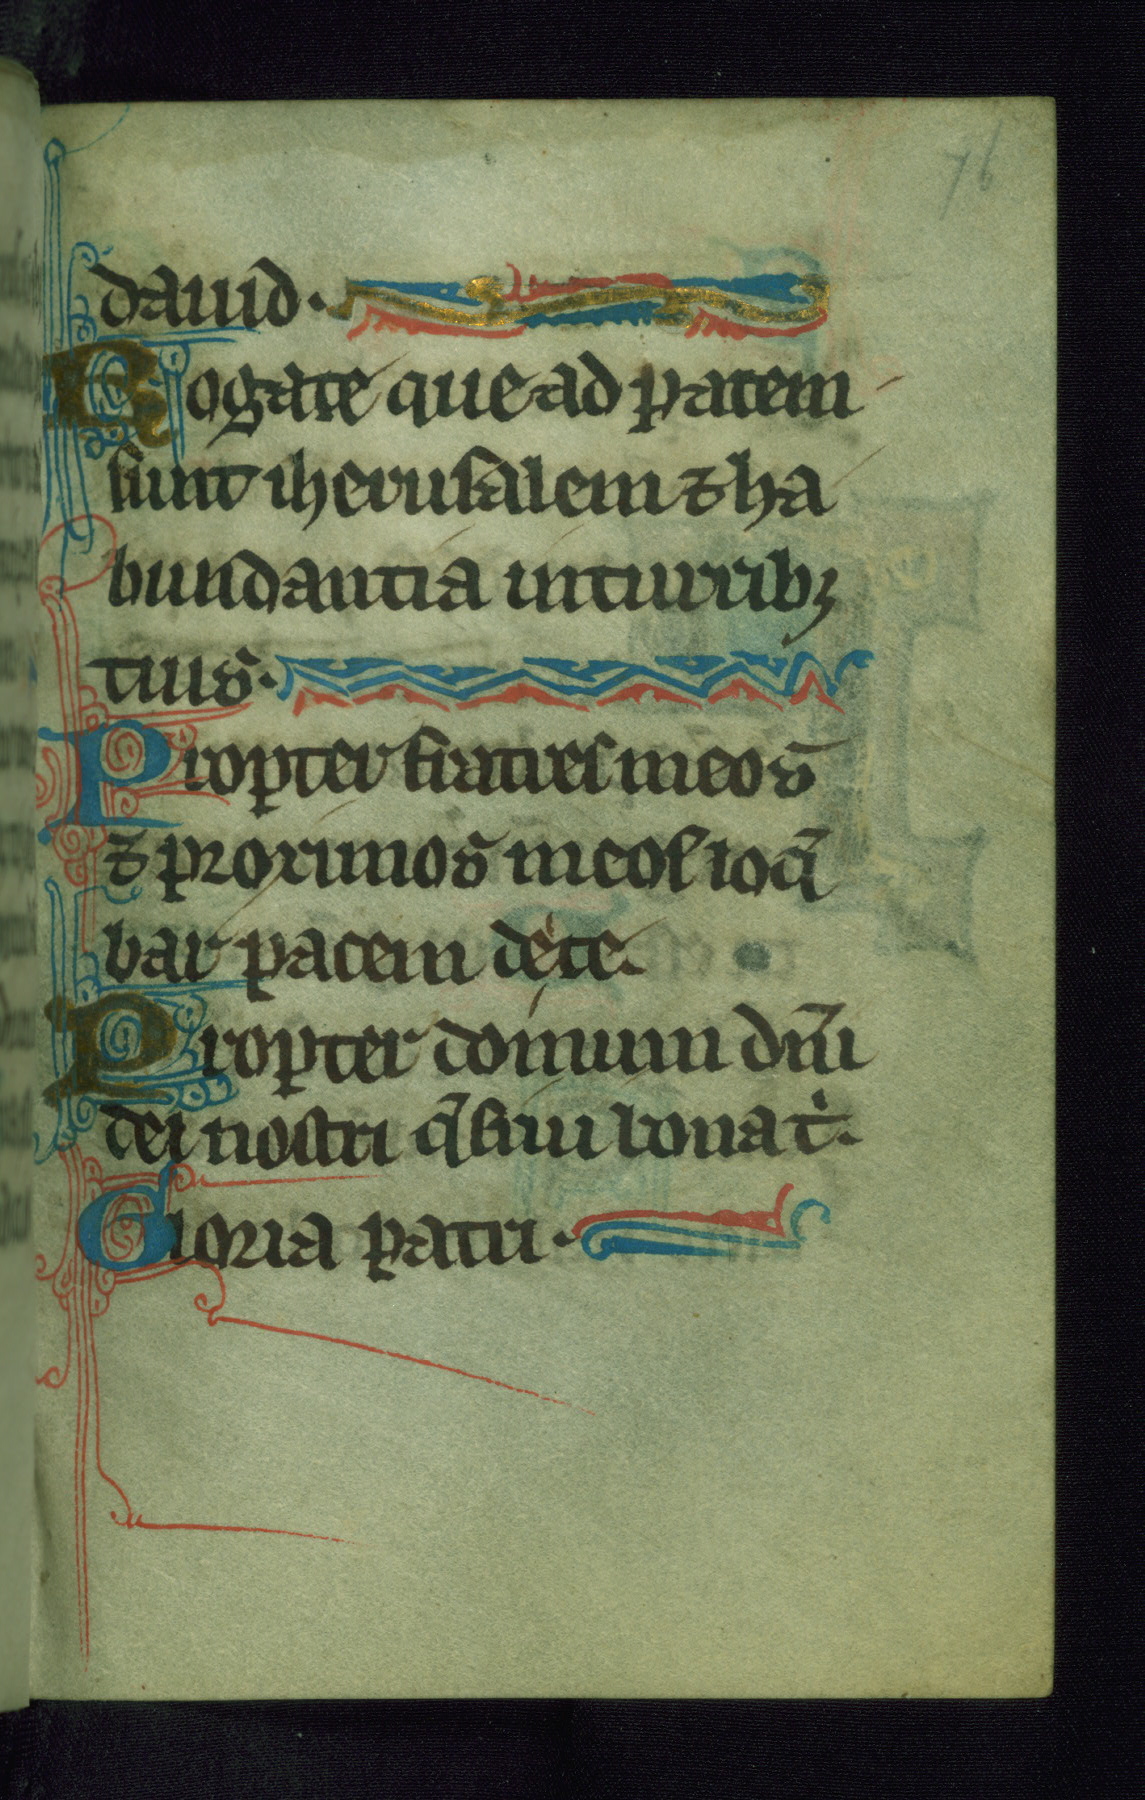 76
dauid.
Rogate que ad pacem
sunt iherusalem ⁊ ha
bundantia in turribꝫ
tuis.
Propter fratres meos
⁊ proximos meos loq̄
bar pacem de te.
Propter domum dn̄i
dei nostri q̄siui bona ṫ.
Gloria patri.